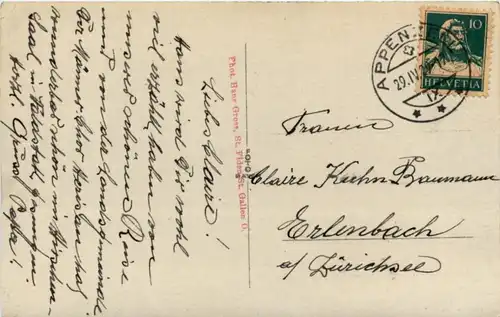 Liebe Claire!
Hans wird Dir wohl
viel erzählt haben von
unserer schönen Reise
und von der Landsgemeinde.
Der Männerchor
wunderschön im
Saal in gesungen
herzl. Gruss! Papa!
Phot. Hans Gross, St. Fiden-St. Gallen O.
APPENZELL
29.IV
10
HELVETIA
Frauen
Claire Kuhn-Baumann
Erlenbach
a/ Zürichsee